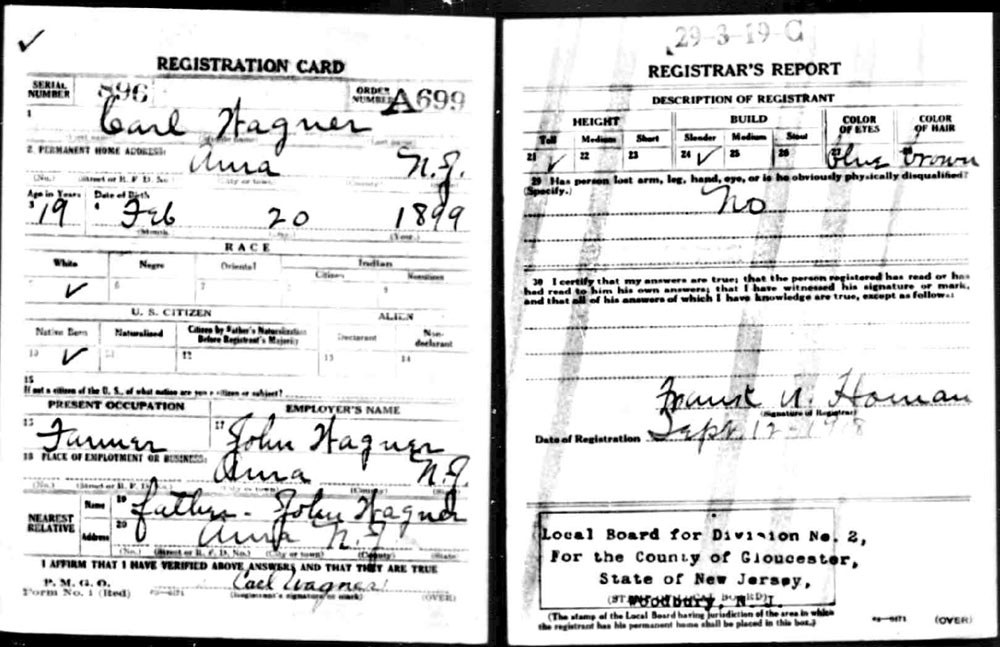 REGISTRATION CARD
SERIAL NUMBER 896 ORDER NUMBER A699
1 Carl Wagner
2 PERMANENT HOME ADDRESS:
Aura N.J.
(No.) (Street or R. F. D. No.) (City or town) (County) (State)
Age in Years Date of Birth
3 19 4 Feb 20 1899
(Month) (Day) (Year)
RACE
White Negro Oriental Indian
Citizen Noncitizen
✓ 6 7 8 9
U. S. CITIZEN ALIEN
Native Born Naturalized Citizen by Father's Naturalization Before Registrant's Majority Declarant Non-declarant
10 ✓ 11 12 13 14
15
If not a citizen of the U. S., of what nation are you a citizen or subject?
PRESENT OCCUPATION EMPLOYER'S NAME
Farmer 17 John Wagner
18 PLACE OF EMPLOYMENT OR BUSINESS:
Aura N.J.
(No.) (Street or R. F. D. No.) (City or town) (County) (State)
NEAREST RELATIVE
Name 19 father - John Wagner
Address 20 Aura N.J
(No.) (Street or R. F. D. No.) (City or town) (County) (State)
I AFFIRM THAT I HAVE VERIFIED ABOVE ANSWERS AND THAT THEY ARE TRUE
P. M. G. O.
Form No. 1 (Red) Carl Wagner
(Registrant's signature or mark) (OVER)
29-3-19-C
REGISTRAR'S REPORT
DESCRIPTION OF REGISTRANT
HEIGHT BUILD COLOR OF EYES COLOR OF HAIR
Tall Medium Short Slender Medium Stout
21 ✓ 22 23 24 ✓ 25 26 27 Blue 28 brown
29 Has person lost arm, leg, hand, eye, or is he obviously physically disqualified?
(Specify.) No
30 I certify that my answers are true; that the person registered has read or has
had read to him his own answers; that I have witnessed his signature or mark,
and that all of his answers of which I have knowledge are true, except as follows:
Homan
(Signature of Registrar)
Date of Registration Sept. 12-1918
Local Board for Division No. 2,
For the County of Gloucester,
State of New Jersey,
Woodbury, N. J.
(STAMP OF LOCAL BOARD)
(The stamp of the Local Board having jurisdiction of the area in which
the registrant has his permanent home shall be placed in this box.)
(OVER)